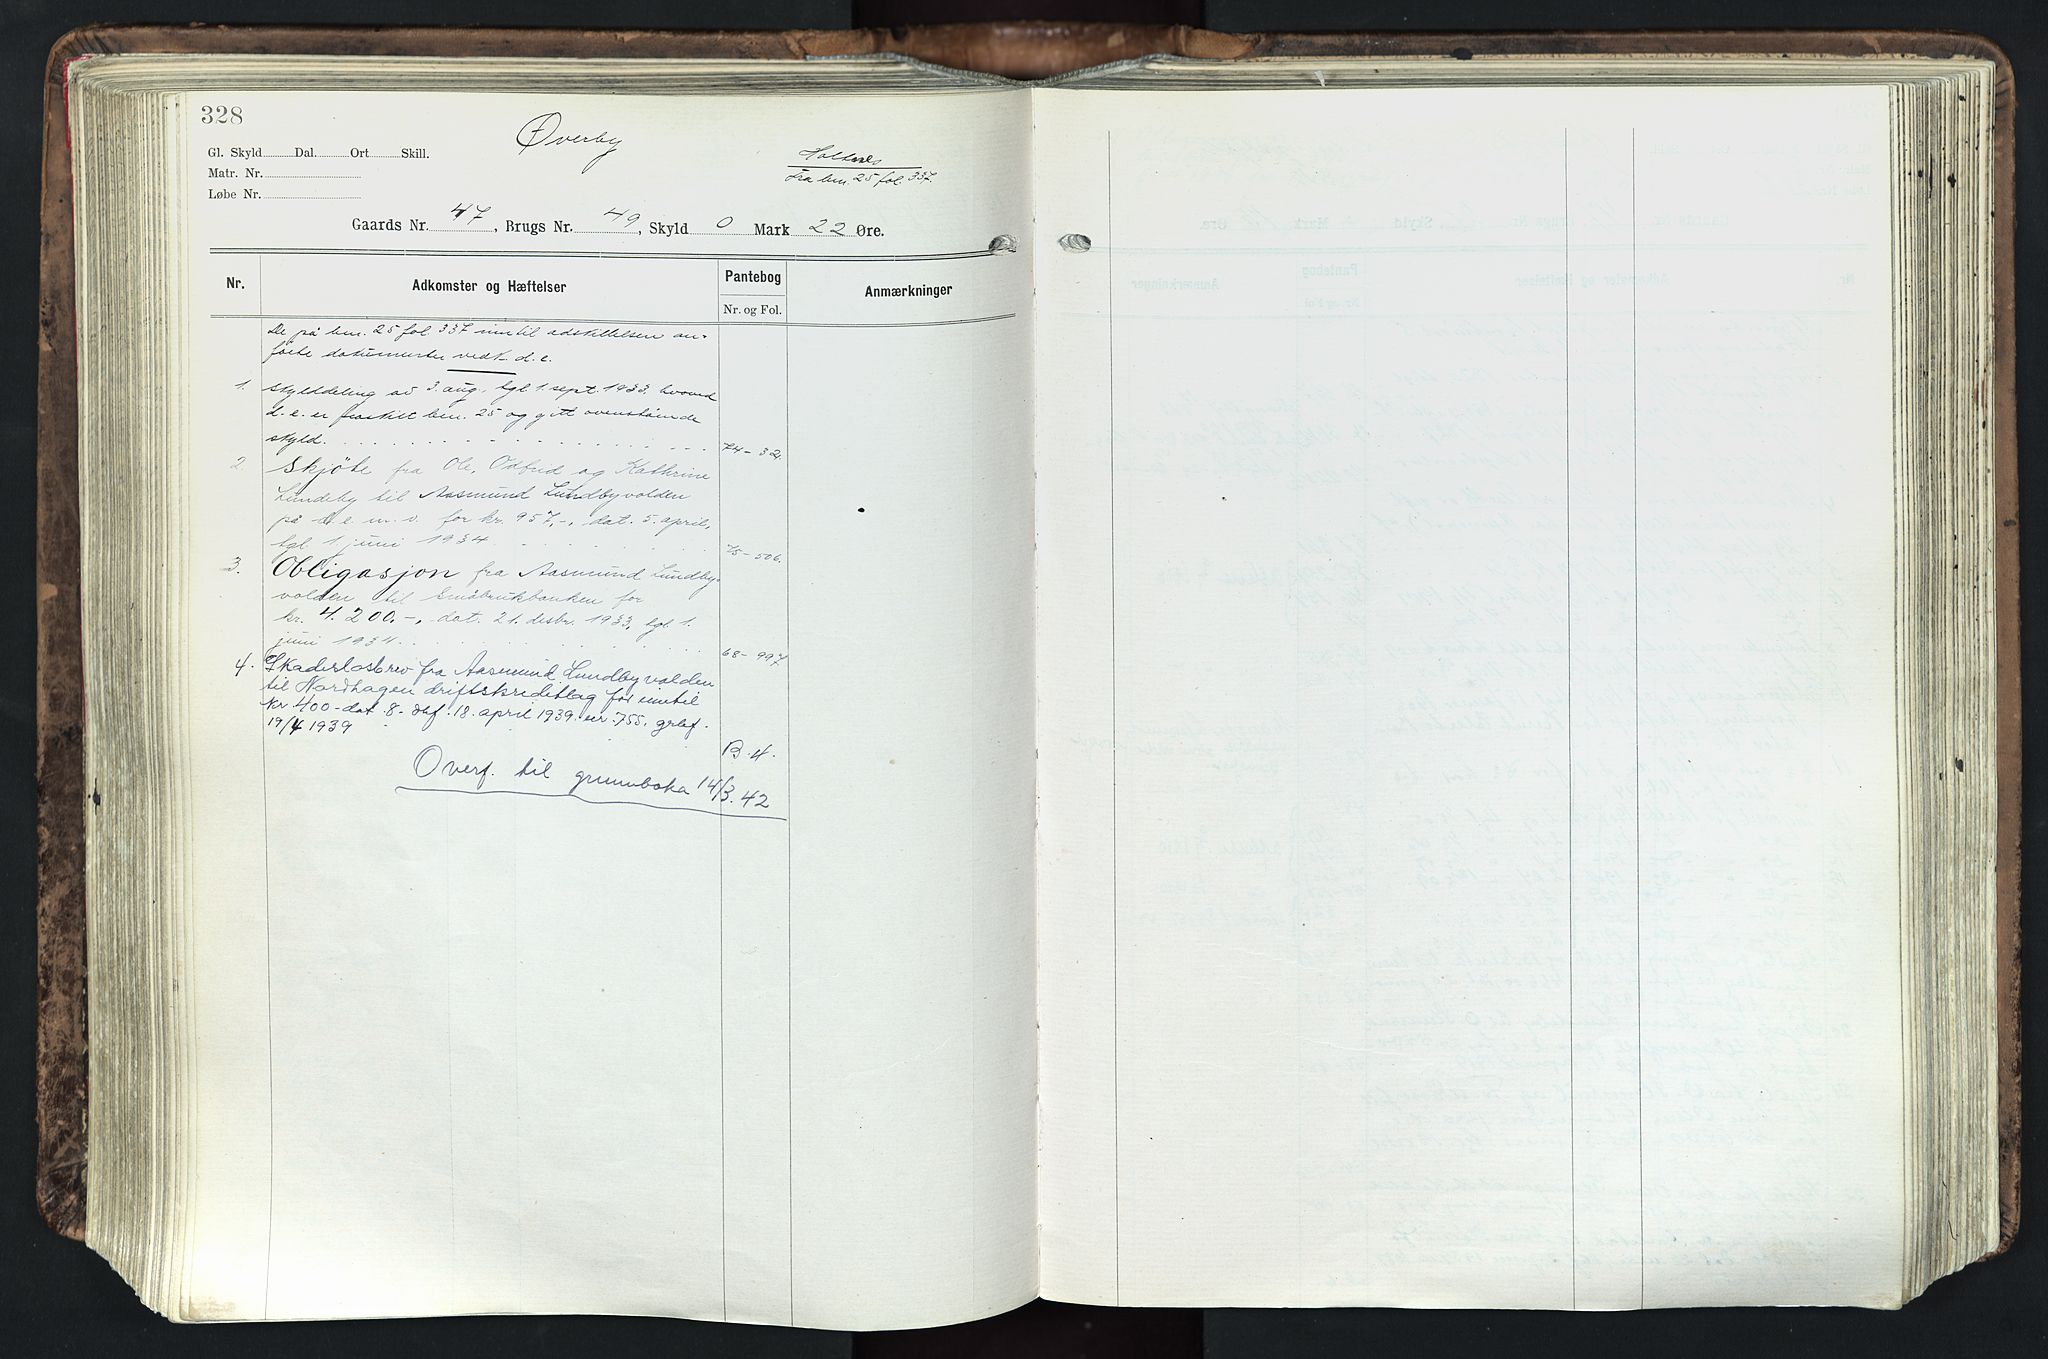 328
Øverby
Holtnes
Gl. Skyld Dal. Ort Skill.
Fra brn. 25 fol. 337.
Matr. Nr.
Løbe Nr.
Gaards Nr. 47, Brugs Nr. 49, Skyld 0 Mark 22 Øre.
Nr. Adkomster og Hæftelser Pantebog Nr. og Fol. Anmærkninger
De på brn. 25 fol. 337 inntil adskillelsen an-
førte dokumenter vedk. d. e.
1. Skylddeling av 3. aug., tgl. 1. sept. 1933 hvorved
d. e. er fraskilt brn. 25 og gitt ovenstående
skyld. 74-32.
2. Skjøte fra Ole, Odfrid og Kathrine
Lundeby til Aasmund Lundbyvolden
på d. e. m. v. for kr. 957,-, dat. 5. april,
tgl. 1. juni 1934 75-506.
3. Obligasjon fra Aasmund Lundby-
volden til Småbrukbanken for
kr. 4.200,-, dat. 21. desbr. 1933, tgl. 1.
juni 1934. 68-997.
4. Skadesløsbrev fra Aasmund Lundbyvolden
til Nordhagen driftskreditlag for inntil
kr 400- dat. 8- dbf. 18. april 1939. nr. 755.
19/4 1939 B. 4.
Overf. til grunnboka 14/3. 42